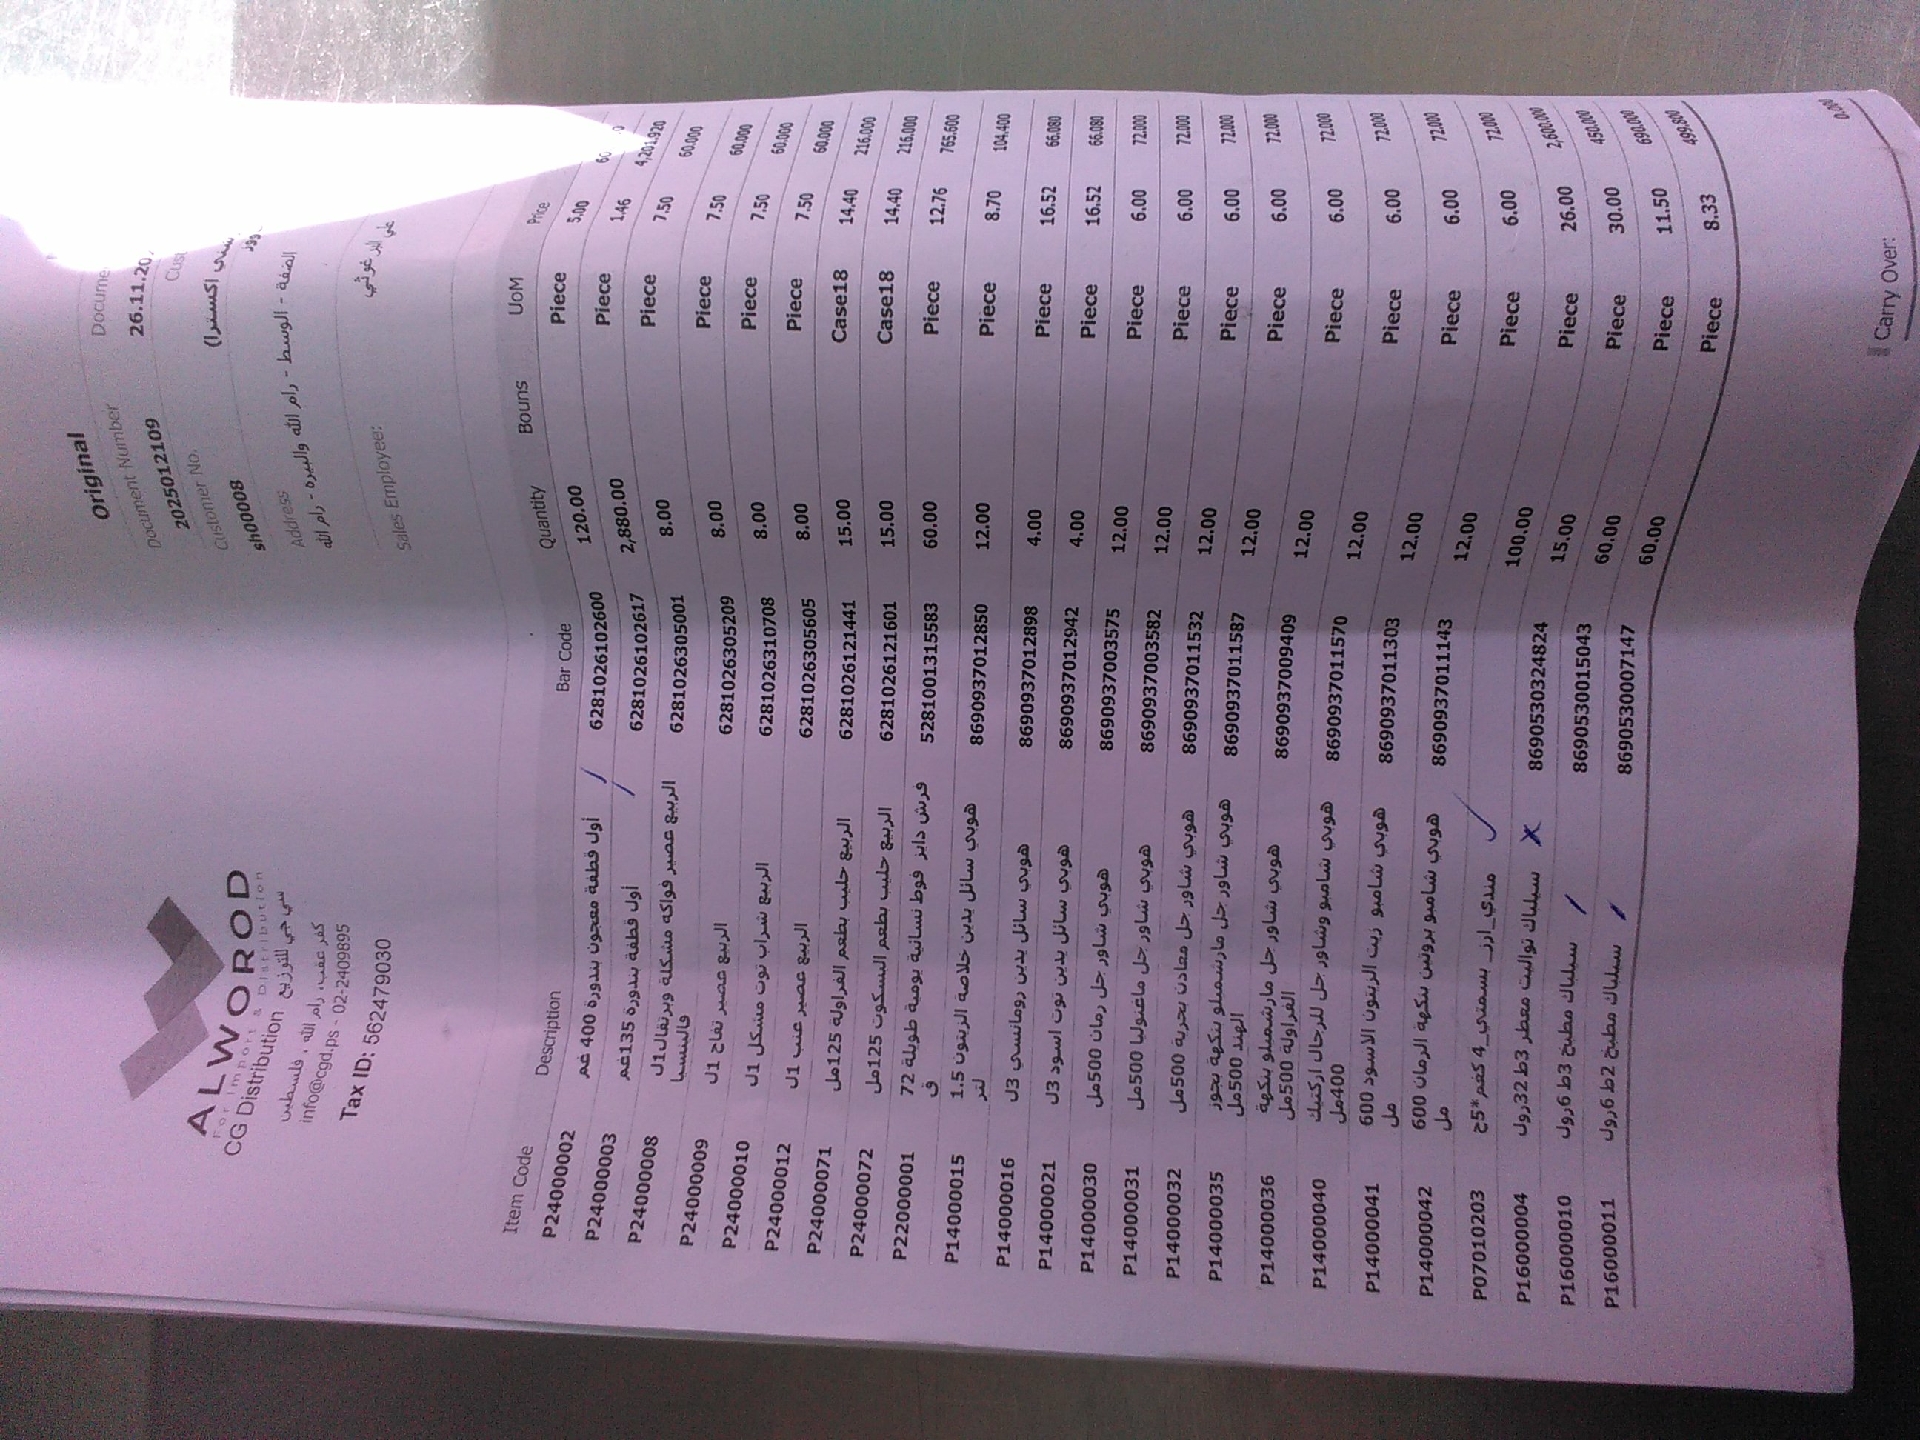 ALWOROD
For Import & Distribution
CG Distribution سي جي للتوزيع
كفر عقب، رام الله ، فلسطين
info@cgd.ps - 02-2409895
Tax ID: 562479030
Original
Document Number
2025012109 26.11.20
Customer No.
sh00008
Address الضفة - الوسط - رام الله والبيره - رام الله
Sales Employee: علي البرغوثي
Item Code Description Bar Code Quantity Bouns UoM Price
P24000002 أول قطفة معجون بندورة 400 غم 6281026102600 120.00 Piece 5.00
P24000003 أول قطفة بندورة 135غم 6281026102617 2,880.00 Piece 1.46 4,201.920
P24000008 الربيع عصير فواكه مشكلة وبرتقال1ل فالينسيا 6281026305001 8.00 Piece 7.50 60.000
P24000009 الربيع عصير تفاح 1ل 6281026305209 8.00 Piece 7.50 60.000
P24000010 الربيع شراب توت مشكل 1ل 6281026310708 8.00 Piece 7.50 60.000
P24000012 الربيع عصير عنب 1ل 6281026305605 8.00 Piece 7.50 60.000
P24000071 الربيع حليب بطعم الفراولة 125مل 6281026121441 15.00 Case18 14.40 216.000
P24000072 الربيع حليب بطعم البسكوت 125مل 6281026121601 15.00 Case18 14.40 216.000
P22000001 فرش دايز فوط نسائية يومية طويلة 72 ف 5281001315583 60.00 Piece 12.76 765.600
P14000015 هوبي سائل يدين خلاصة الزيتون 1.5 لتر 8690937012850 12.00 Piece 8.70 104.400
P14000016 هوبي سائل يدين رومانسي 3ل 8690937012898 4.00 Piece 16.52 66.080
P14000021 هوبي سائل يدين توت اسود 3ل 8690937012942 4.00 Piece 16.52 66.080
P14000030 هوبي شاور جل رمان 500مل 8690937003575 12.00 Piece 6.00 72.000
P14000031 هوبي شاور جل ماغنوليا 500مل 8690937003582 12.00 Piece 6.00 72.000
P14000032 هوبي شاور جل معادن بحرية 500مل 8690937011532 12.00 Piece 6.00 72.000
P14000035 هوبي شاور جل مارشميلو بنكهة بجوز الهند 500مل 8690937011587 12.00 Piece 6.00 72.000
P14000036 هوبي شاور جل مارشميلو بنكهة الفراولة 500مل 8690937009409 12.00 Piece 6.00 72.000
P14000040 هوبي شامبو وشاور جل للرجال اركتيك 400مل 8690937011570 12.00 Piece 6.00 72.000
P14000041 هوبي شامبو زيت الزيتون الاسود 600 مل 8690937011303 12.00 Piece 6.00 72.000
P14000042 هوبي شامبو بروتين بنكهة الرمان 600 مل 8690937011143 12.00 Piece 6.00 72.000
P07010203 مندي_ارز_بسمتي_4 كغم*5ح 100.00 Piece 26.00 2,600.000
P16000004 سيلباك تواليت معطر 3ط 32رول 8690530324824 15.00 Piece 30.00 450.000
P16000010 سيلباك مطبخ 3ط 6رول 8690530015043 60.00 Piece 11.50 690.000
P16000011 سيلباك مطبخ 2ط 6رول 8690530007147 60.00 Piece 8.33 499.800
Carry Over: 0.000